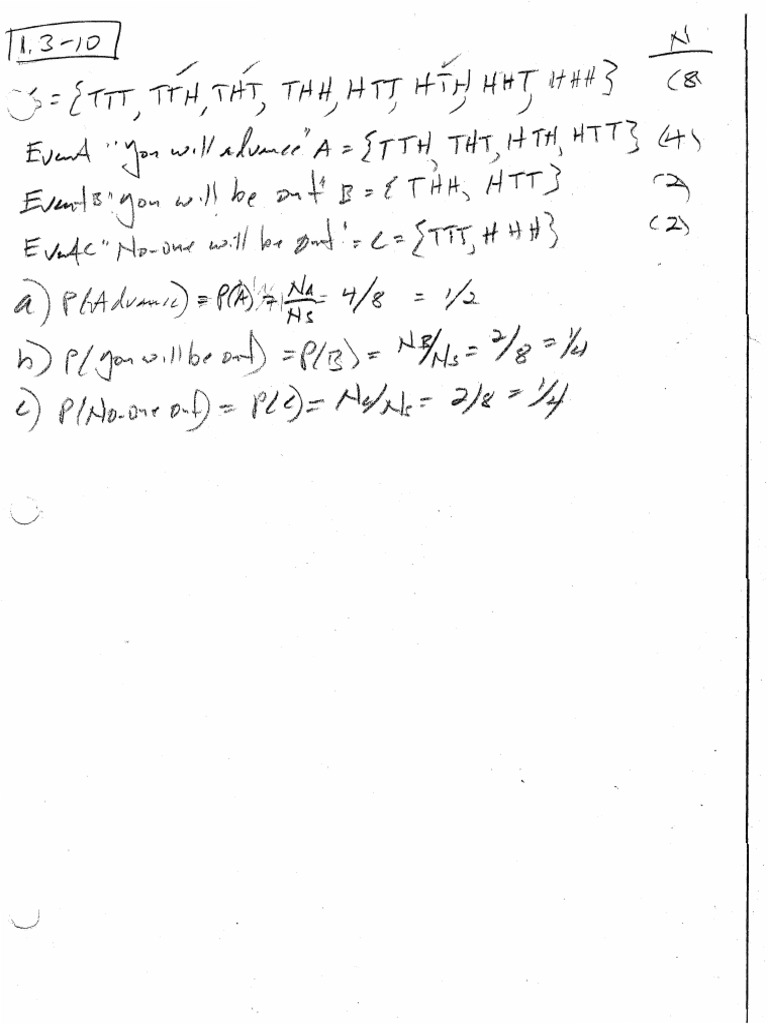 1.3-10
N
S = {TTT, TTH, THT, THH, HTT, HTH, HHT, HHH} (8
Event A "you will advance" A = {TTH, THT, HTH, HTT} (4)
Event B "you will be out" B = {THH, HTT} (2)
Event C "No-one will be out" = C = {TTT, HHH} (2)
a) P(Advance) = P(A) = NA/NS = 4/8 = 1/2
b) P(you will be out) = P(B) = NB/NS = 2/8 = 1/4
c) P(No-one out) = P(C) = Nc/Ns = 2/8 = 1/4